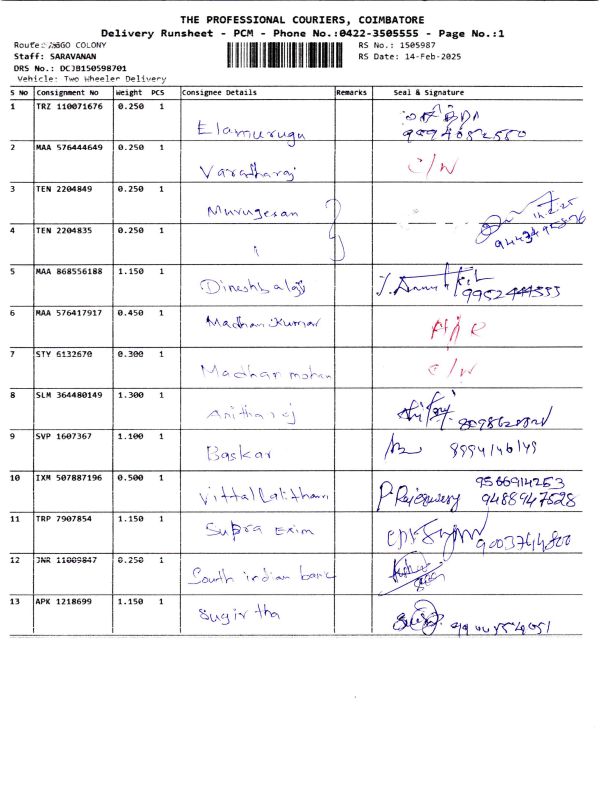 THE PROFESSIONAL COURIERS, COIMBATORE
Delivery Runsheet - PCM - Phone No.:0422-3505555 - Page No.:1
Route: GO COLONY
RS No.: 1505987
Staff: SARAVANAN
RS Date: 14-Feb-2025
DRS No.: DCJB150598701
Vehicle: Two Wheeler Delivery
S No Consignment No Weight PCS Consignee Details Remarks Seal & Signature
1 TRZ 110071676 0.250 1
Elamurugu
2 MAA 576444649 0.250 1
Varatharaj C/W
3 TEN 2204849 0.250 1
Murugesan
4 TEN 2204835 0.250 1
5 MAA 868556188 1.150 1
Dineshbalaji
9952444555
6 MAA 576417917 0.450 1
Madhan Kumar
7 STY 6132670 0.300 1
Madhan mohan C/W
8 SLM 364480149 1.300 1
Anitharaj
9 SVP 1607367 1.100 1
Baskar 8994146149
10 IXM 507887196 0.500 1
9566914253
P. Rajeswary 9488947528
11 TRP 7907854 1.150 1
Supra Exim
9003744800
12 JNR 11009847 0.250 1
South indian bank
13 APK 1218699 1.150 1
Sugirtha